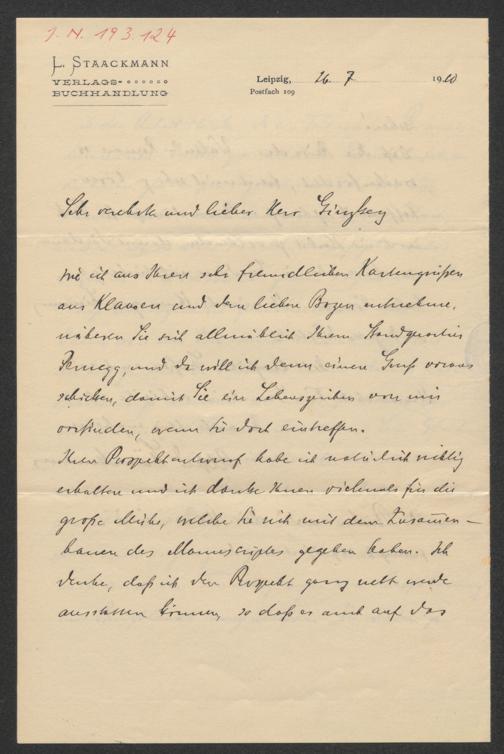 J. N. 193.124
L. STAACKMANN
VERLAGS-
BUCHHANDLUNG
Leipzig, 26. 7 1910
Postfach 109
Sehr verehrter und lieber Herr Ginzkey
Wie ich aus Ihren sehr freundlichen Kartengrüßen
aus Klausen und dem lieben Bozen entnehme,
näheren Sie sich allmählich Ihrem Standquartier
Pernegg, und da will ich denn einen Gruß voraus
schicken, damit Sie ein Lebenszeichen von mir
vorfinden, wenn Sie dort eintreffen.
Ihren Prospektentwurf habe ich natürlich richtig
erhalten und ich danke Ihnen vielmals für die
große Mühe, welche Sie sich mit dem Zusammen-
bauen des Manuscriptes gegeben haben. Ich
denke, daß ich den Prospekt ganz nett werde
ausstatten können, so daß es auch auf das